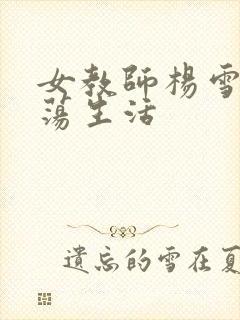 女教師楊雪
蕩生活
遺忘的雪在夏